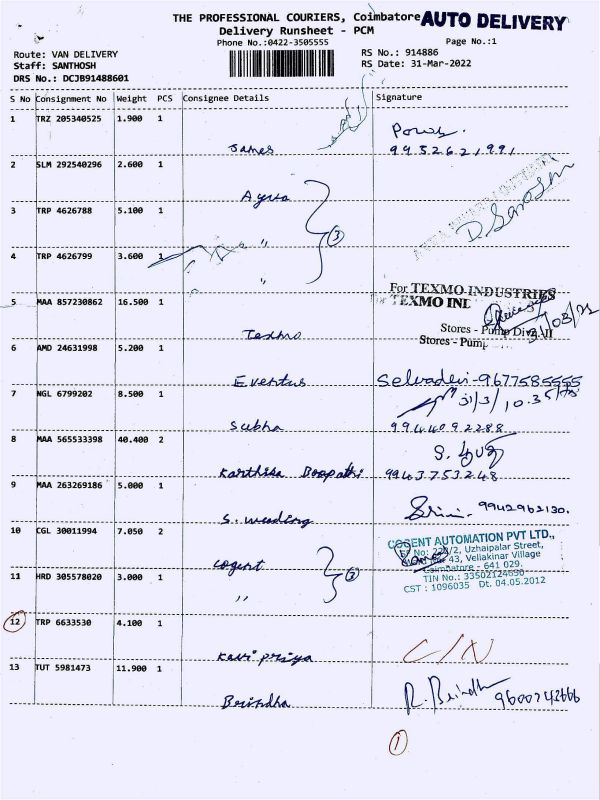 THE PROFESSIONAL COURIERS, Coimbatore AUTO DELIVERY
Delivery Runsheet - PCM
Phone No.:0422-3505555 Page No.:1
Route: VAN DELIVERY RS No.: 914886
Staff: SANTHOSH RS Date: 31-Mar-2022
DRS No.: DCJB91488601
S No Consignment No Weight PCS Consignee Details Signature
1 TRZ 205340525 1.900 1
James 9952621991
2 SLM 292540296 2.600 1
3 TRP 4626788 5.100 1
"
3
4 TRP 4626799 3.600 1
"
For TEXMO INDUSTRIES
TEXMO IND
5 MAA 857230862 16.500 1
31/03/22
Stores - Pump Div. II
Stores - Pump
Texmo
6 AMD 24631998 5.200 1
Eventus Selvadevi-9677585555
7 NGL 6799202 8.500 1 31/3/10.35
Subha 9944092288
8 MAA 565533398 40.400 2
Karthika Boopathi 9943753248
9 MAA 263269186 5.000 1
Srini. 9942962130.
S. weeding
10 CGL 30011994 7.050 2
COGENT AUTOMATION PVT LTD.,
SF No: 228/2, Uzhaipalar Street,
43, Vellakinar Village
Coimbatore - 641 029.
TIN No.: 33502124650
CST : 1096035 Dt. 04.05.2012
cogent
2
11 HRD 305578020 3.000 1
"
12 TRP 6633530 4.100 1
C/N
Kavi priya
13 TUT 5981473 11.900 1
Brindha R. Brindha 9600742666
1